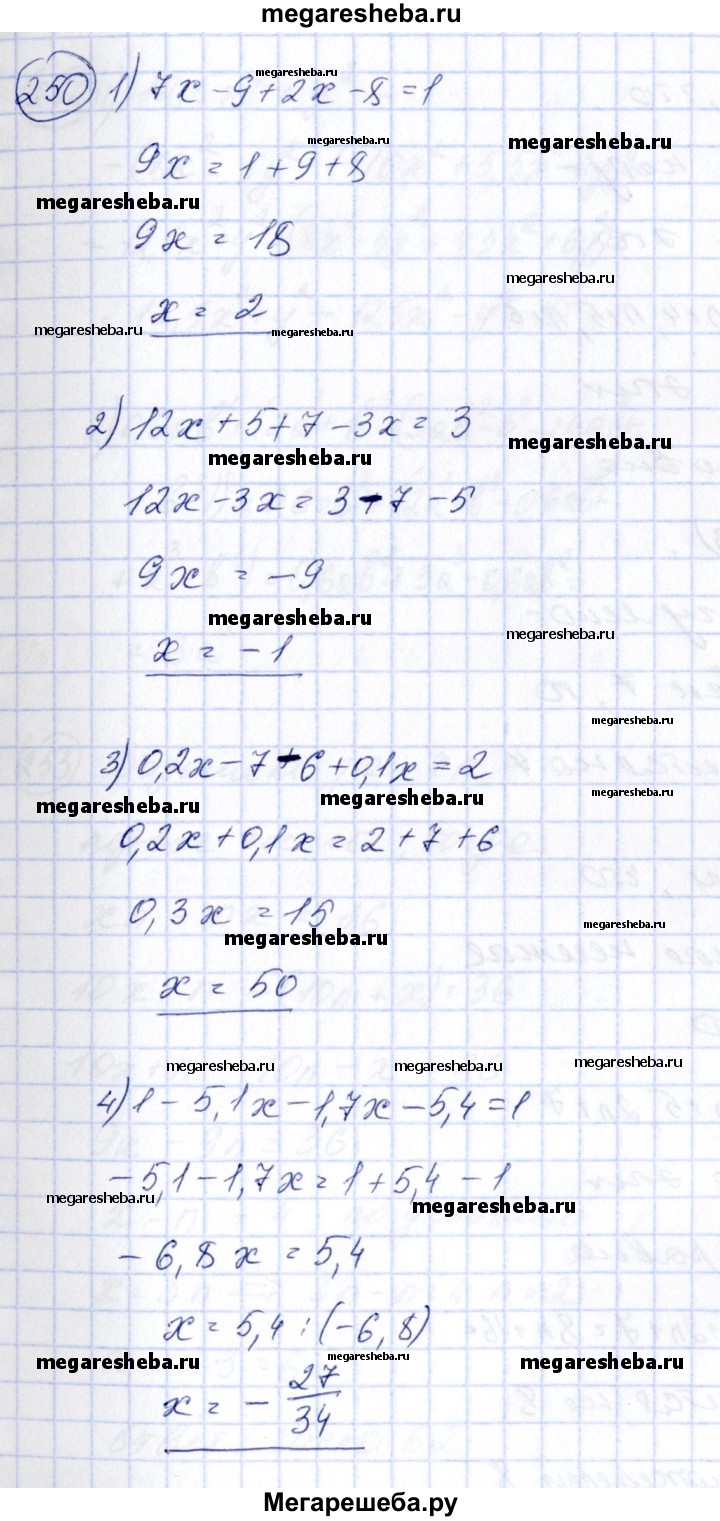 megaresheba.ru
250 1) 7x - 9 + 2x - 8 = 1
megaresheba.ru
megaresheba.ru
megaresheba.ru
9x = 1 + 9 + 8
megaresheba.ru
9x = 18
megaresheba.ru
x = 2
megaresheba.ru
megaresheba.ru
2) 12x + 5 + 7 - 3x = 3
megaresheba.ru
megaresheba.ru
12x - 3x = 3 - 7 - 5
9x = -9
megaresheba.ru
megaresheba.ru
x = -1
megaresheba.ru
3) 0,2x - 7 - 6 + 0,1x = 2
megaresheba.ru
megaresheba.ru
megaresheba.ru
0,2x + 0,1x = 2 + 7 + 6
0,3x = 15
megaresheba.ru
megaresheba.ru
x = 50
megaresheba.ru
megaresheba.ru
megaresheba.ru
4) 1 - 5,1x - 1,7x - 5,4 = 1
-5,1 - 1,7x = 1 + 5,4 - 1
megaresheba.ru
megaresheba.ru
-6,8x = 5,4
x = 5,4 : (-6,8)
megaresheba.ru
megaresheba.ru
megaresheba.ru
x = - 27/34
Мегарешеба.ру